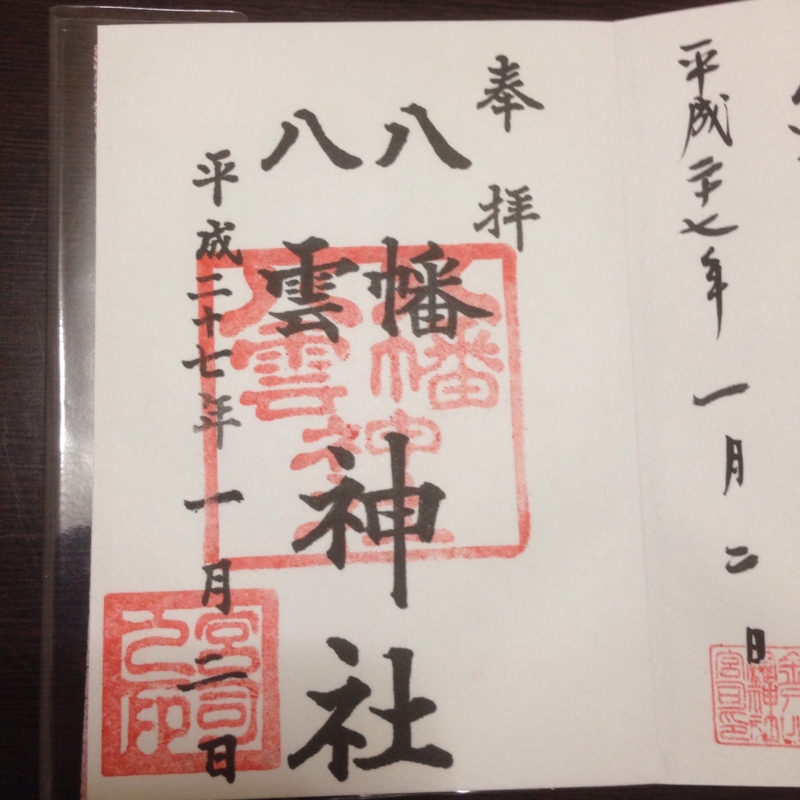 平成二十七年一月二日
奉拝
八幡
八雲
神社
平成二十七年一月二日
八幡
神社
八雲
宮司
之印